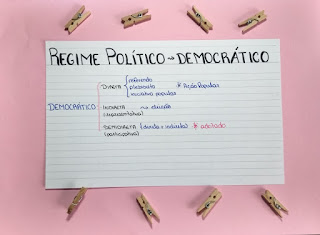 REGIME POLÍTICO → DEMOCRÁTICO
DEMOCRÁTICO
DIRETA
referendo
plebiscito
iniciativa popular
* Ação Popular
INDIRETA → na eleição
(representativa)
SEMIDIRETA (direta e indireta) * adotado
(participativa)